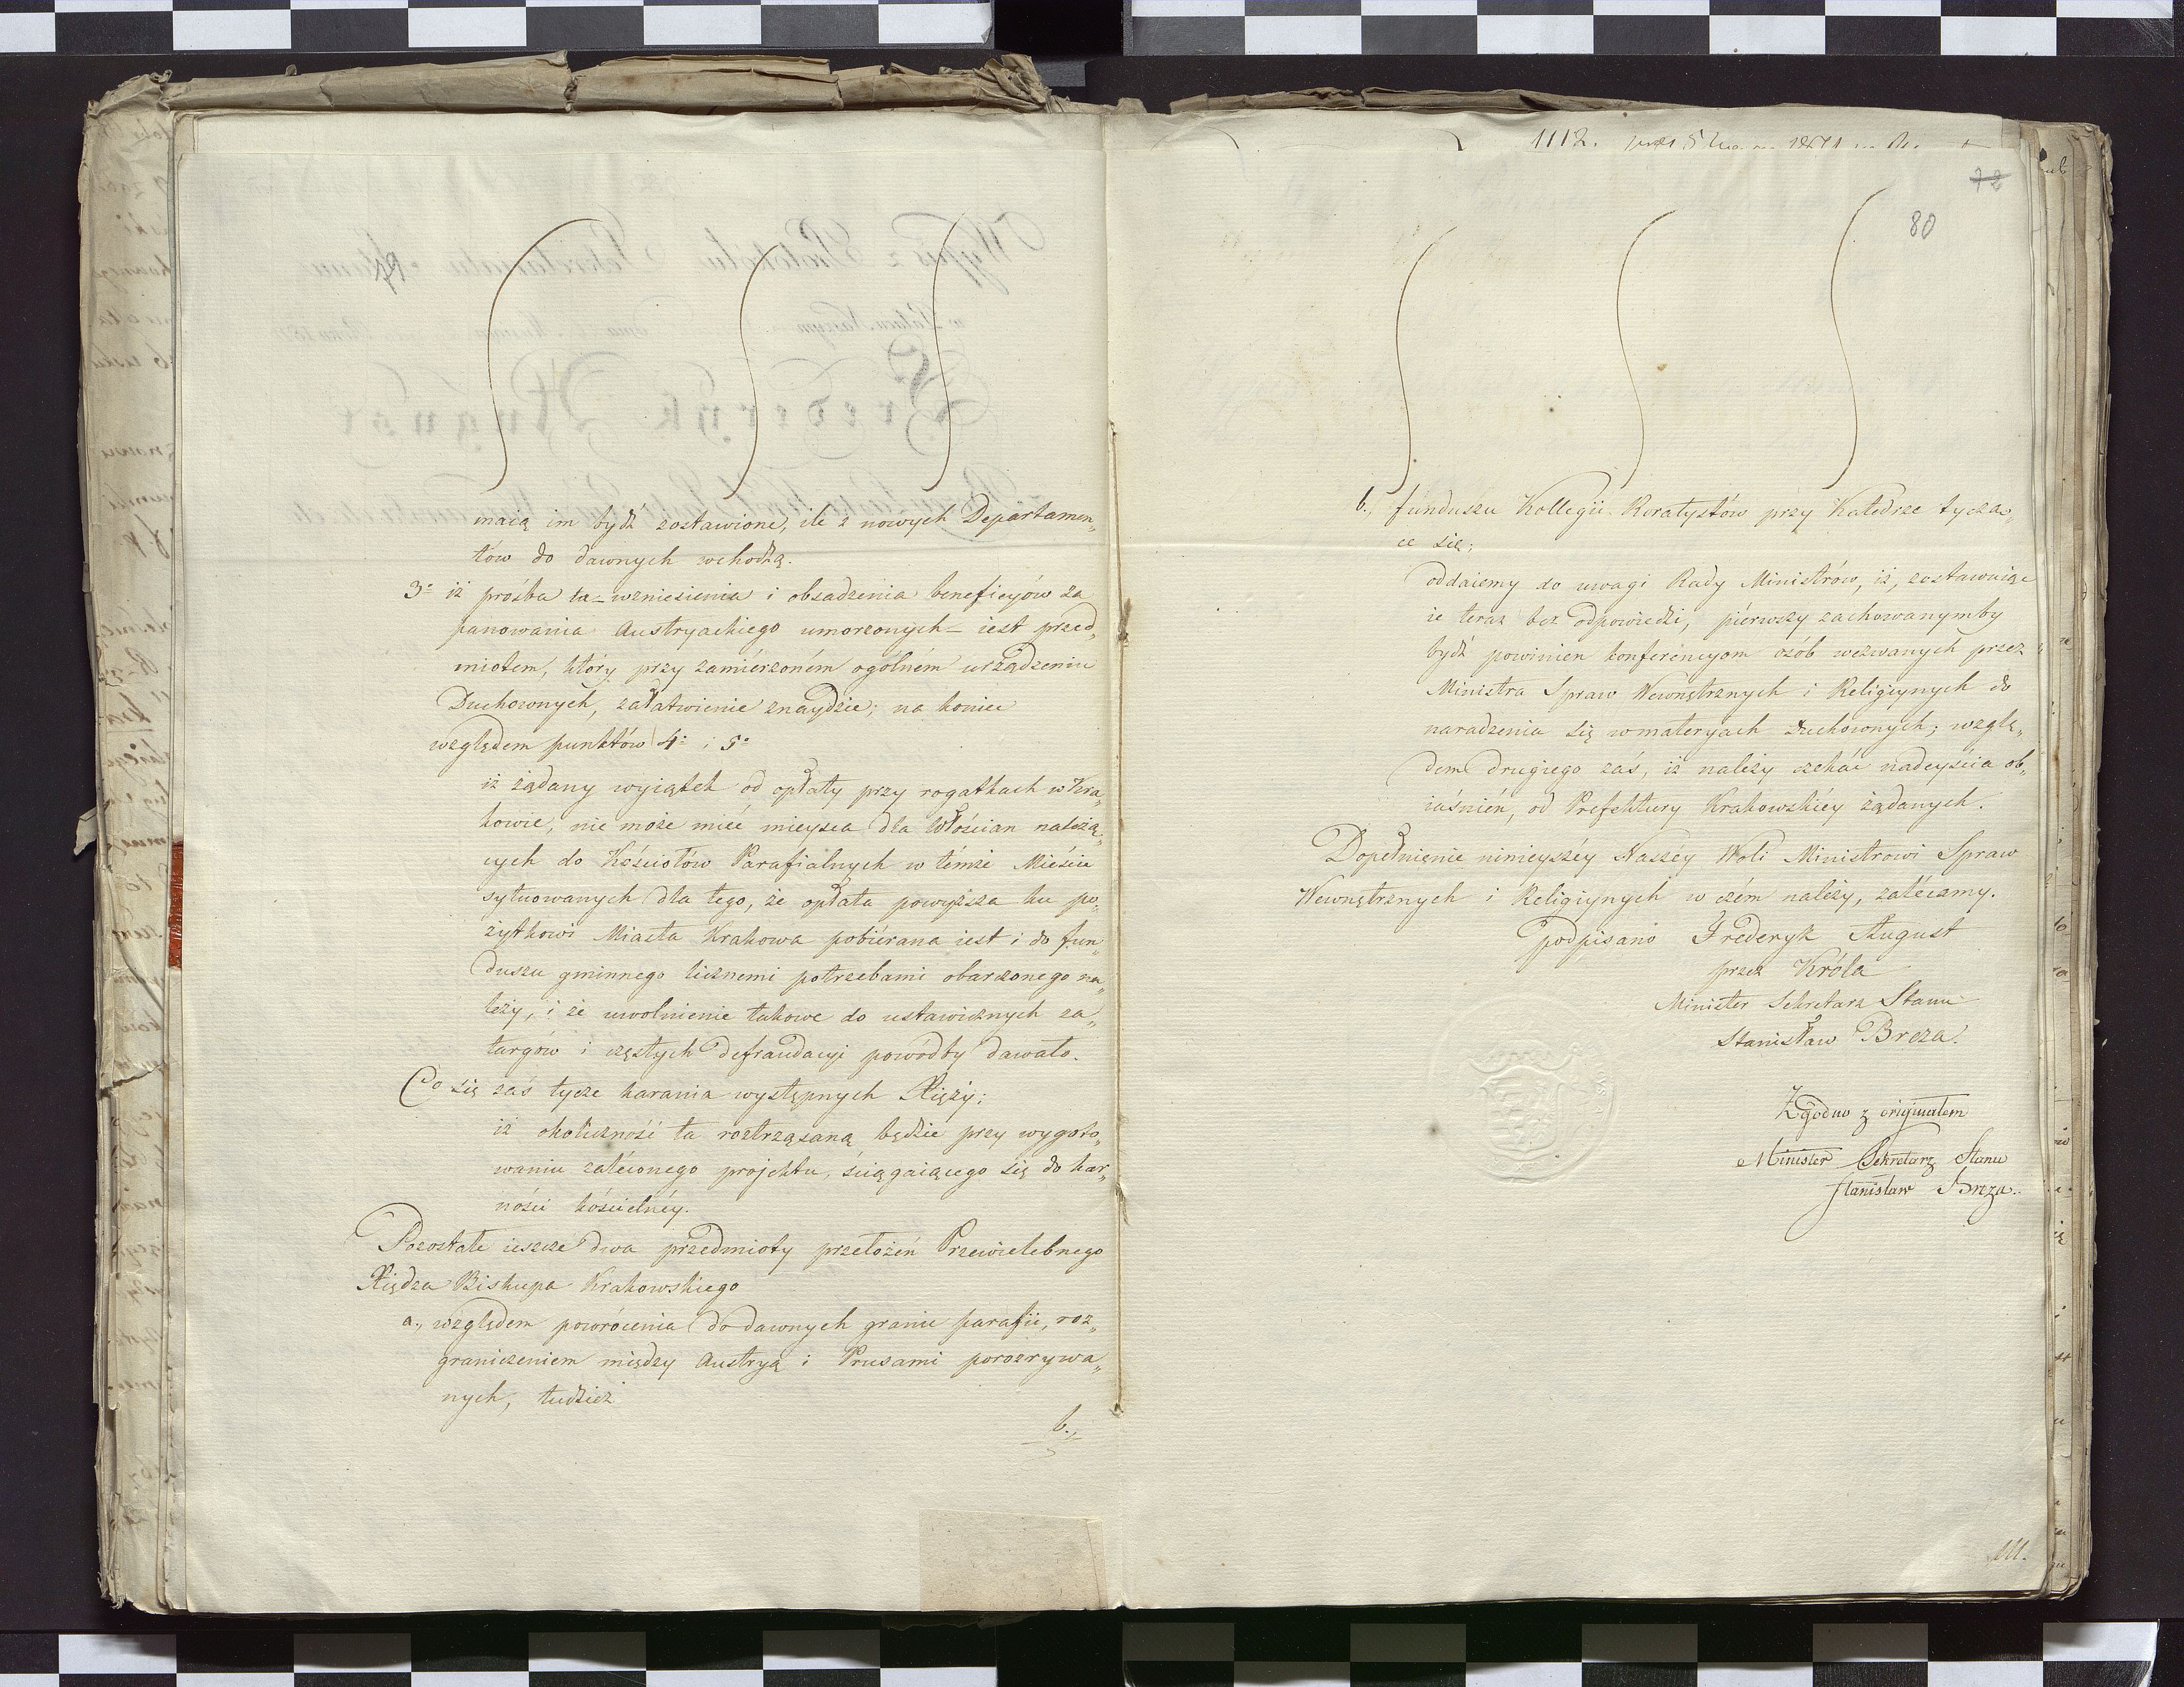 maią im bydź zostawione, ile z nowych Departamen„
tów do dawnych wchodzą.
3o iż prośba ta_wzniesienia i obsadzenia beneficyów za
panowania Austryackiego umorzonych_ iest przed„
miotem, który przy zamiérzoném ogólném urządzeniu
Duchownych, załatwienie znaydzie; na koniec
względem punktów 4o i 5o
iż żądany wyiątek od opłaty przy rogatkach w Kra„
kowie, nie może mieć mieysca dla Włościan należą„
cych do Kościołów Parafialnych w témże Mieście
sytuowanych dla tego, że opłata powyższa ku po„
żytkowi Miasta Krakowa pobiérana iest i do fun„
duszu gminnego licznemi potrzebami obarczonego na„
leży, i że uwolnienie takowe do ustawicznych za„
targów i częstych defraudacyi powódby dawało.
Co się zaś tycze karania występnych Xięży;
iż okoliczność ta roztrząsaną będzie przy wygoto„
waniu zaléconego projektu, ściągaiącego się do kar„
ności kościelnéy.
Pozostałe ieszcze dwa przedmioty przełożeń Przewielebnego
Xiędza Biskupa Krakowskiego
a., względem powrócenia do dawnych granic parafii, roz„
graniczeniem między Austryą i Prusami porozrywa„
nych, tudzież
b.,
1112.
72
80
b., funduszu Kollegii Roratystów przy Katedrze tycza„
ce się;
oddaiemy do uwagi Rady Ministrów, iż, zostawuiąc
ie teraz bez odpowiedzi, piérwszy zachowanymby
bydź powinien konferencyom osób wezwanych przez
Ministra Spraw Wewnętrznych i Religiynych do
naradzenia się w materyach Duchownych; wzglę„
dem drugiego zaś, iż należy czekać nadeyścia ob„
iaśnień, od Prefektury Krakowskiéy żądanych.
Dopełnienie ninieyszéy Naszéy Woli Ministrowi Spraw
Wewnętrznych i Religiynych w czém należy, zalécamy.
podpisano Frederyk August
przez Króla
Minister Sekretarz Stanu
Stanisław Breza.
Zgodno z originałem
Minister Sekretarz Stanu
Stanisław Breza.